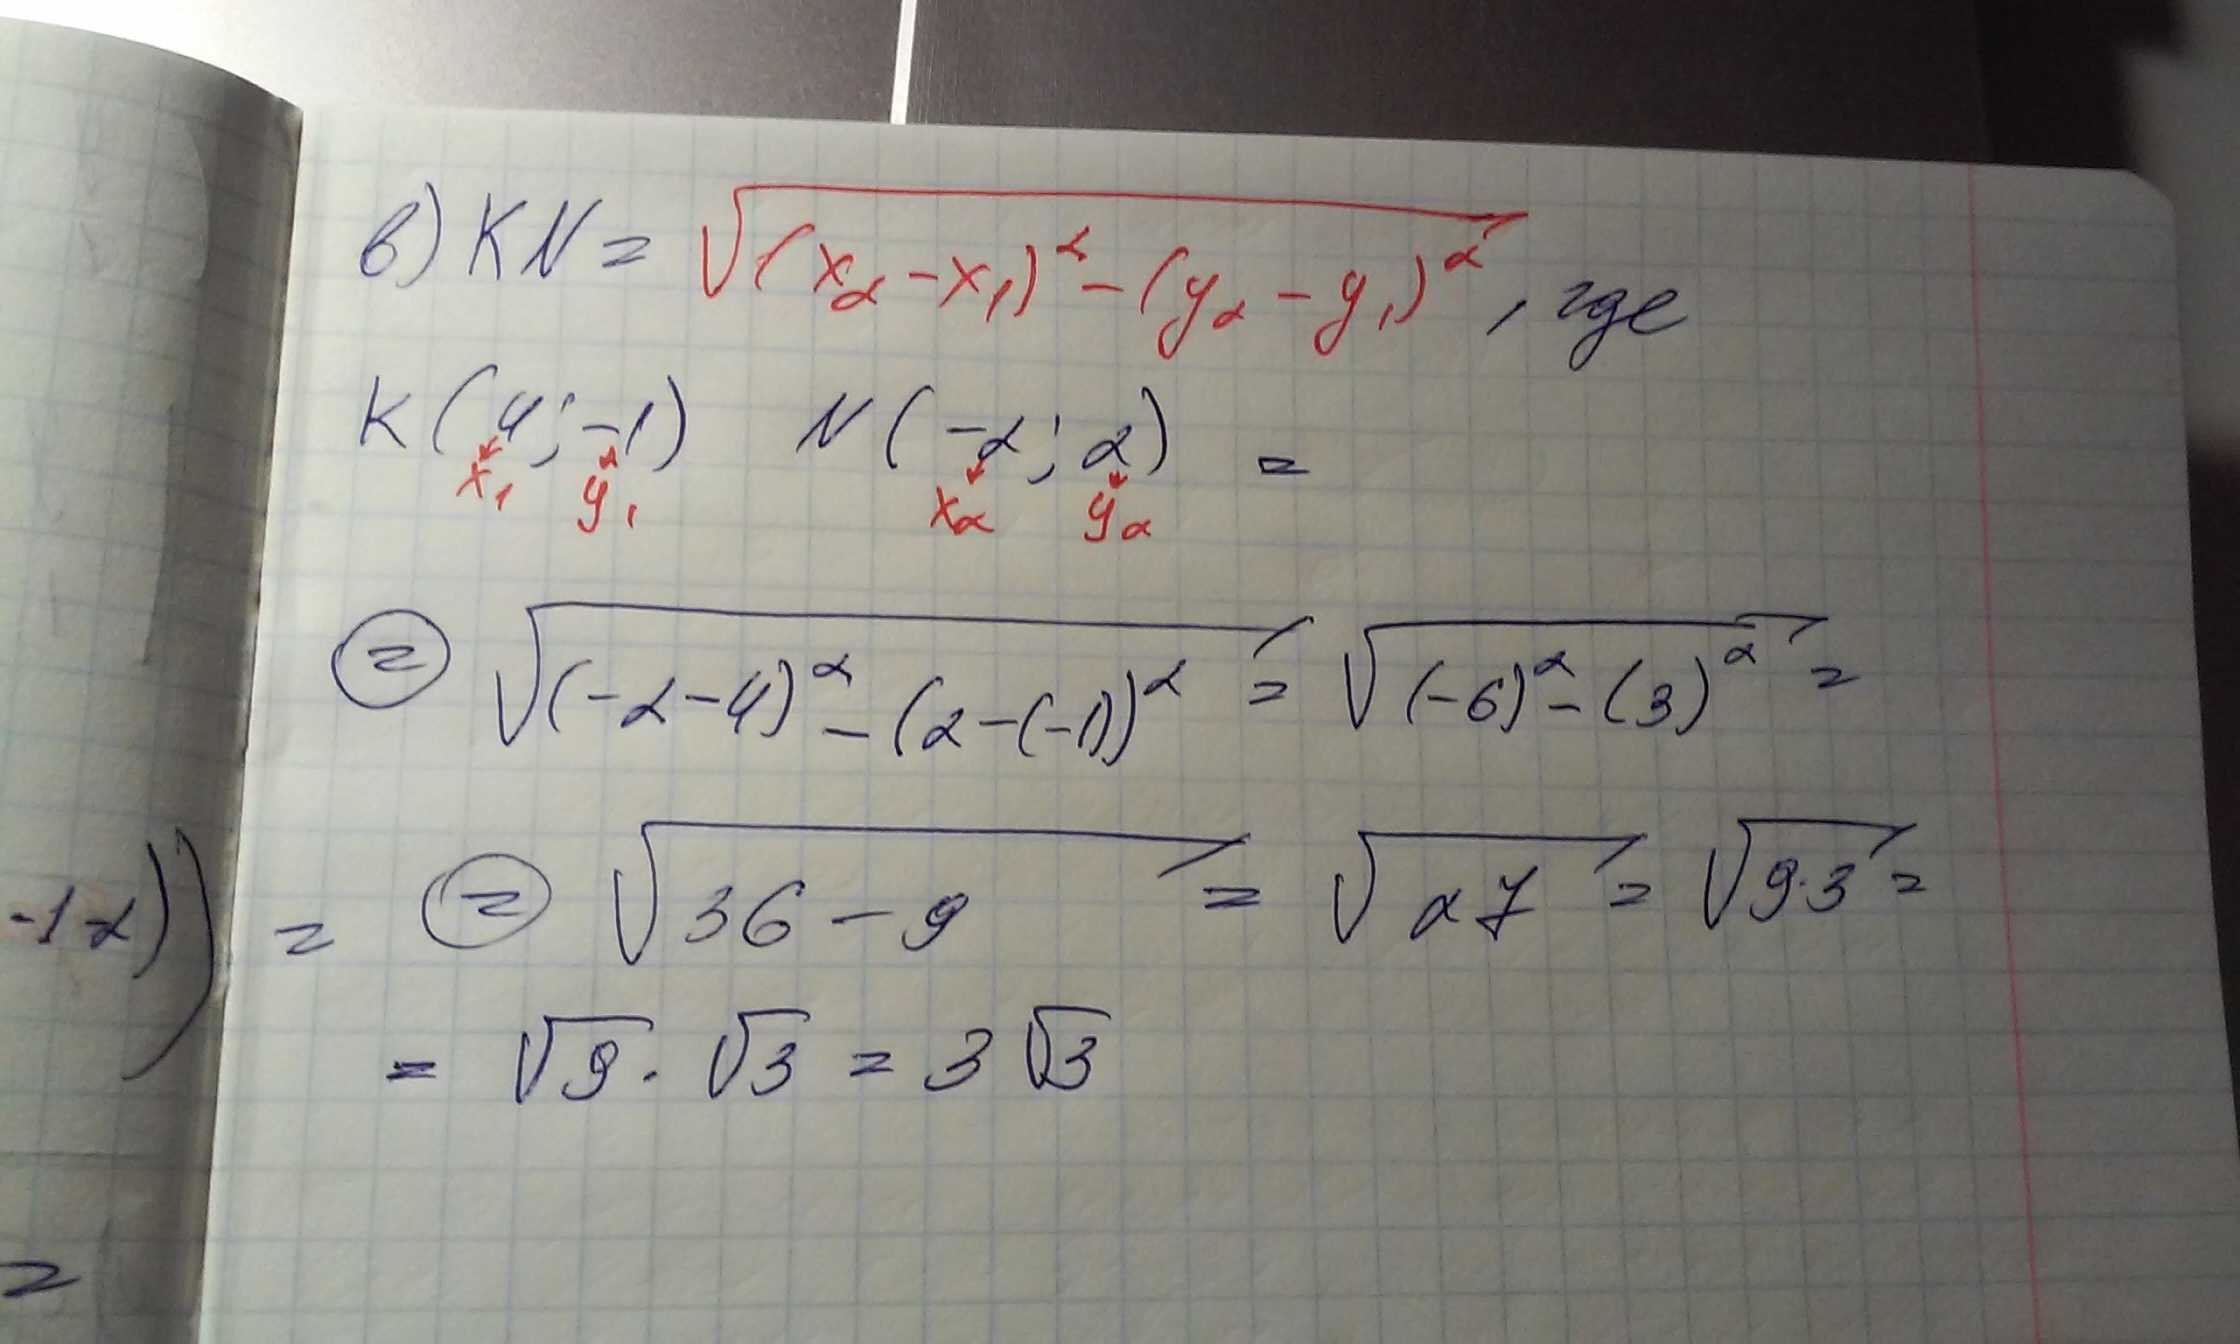 в) KN = √((x₂ - x₁)² - (y₂ - y₁)²), где
K (4; -1) N (-2; 2) =
x₁ y₁ x₂ y₂
= √((-2-4)² - (2-(-1))²) = √((-6)² - (3)²) =
-12)) = = √(36 - 9) = √27 = √(9·3) =
= √9 · √3 = 3√3
=